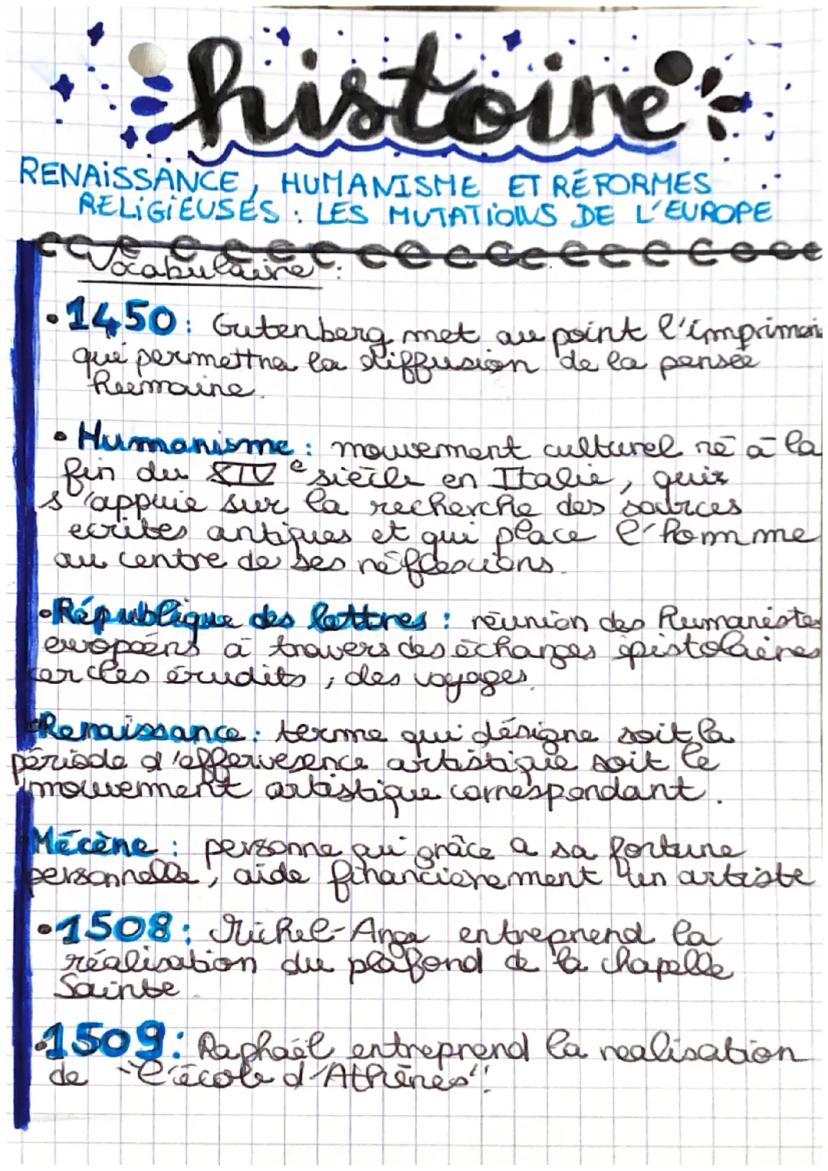 histoire
RENAISSANCE, HUMANISME ET RÉFORMES
RELIGIEUSES : LES MUTATIONS DE L'EUROPE
Vocabulaire :
• 1450 : Gutenberg met au point l'imprimeri
qui permettra la diffusion de la pensée
humaine.
• Humanisme : mouvement culturel né à la
fin du XIVe siècle en Italie, qui
s'appuie sur la recherche des sources
ecrites antiques et qui place l'homme
au centre de ses réflexions.
• République des lettres : réunion des humanistes
européens à travers des échanges épistolaires
cercles érudits, des voyages.
• Renaissance : terme qui désigne soit la
période d'effervesence artistique soit le
mouvement artistique correspondant.
Mécène : personne qui grâce a sa fortune
personnelle, aide financièrement un artiste
• 1508 : Michel-Ange entreprend la
réalisation du plafond de la chapelle
Sainte
• 1509 : Raphaël entreprend la realisation
de "l'école d'Athènes".